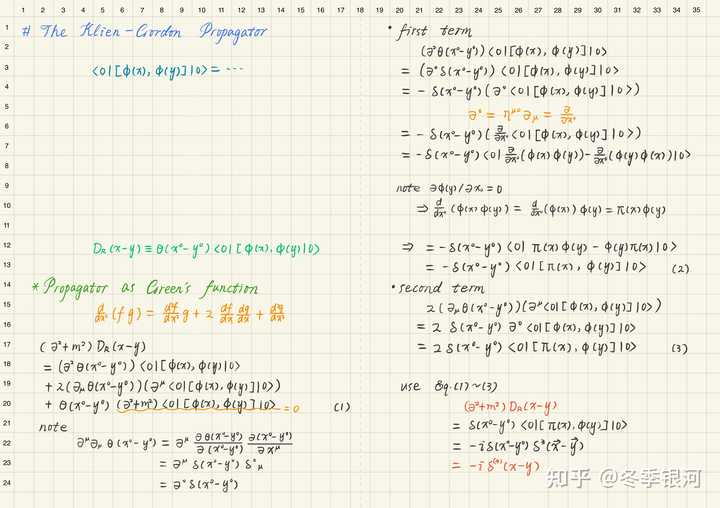 # The Klien-Gordon Propagator
<0|[ϕ(x), ϕ(y)]|0> = ...
D_R(x-y) ≡ θ(x⁰-y⁰) <0|[ϕ(x), ϕ(y)]|0>
* Propagator as Green's function
d²/dx² (fg) = d²f/dx² g + 2 df/dx dg/dx + d²g/dx²
(∂²+m²) D_R(x-y)
= (∂²θ(x⁰-y⁰)) <0|[ϕ(x), ϕ(y)]|0>
+ 2(∂_μ θ(x⁰-y⁰)) (∂^μ <0|[ϕ(x), ϕ(y)]|0>)
+ θ(x⁰-y⁰) (∂²+m²) <0|[ϕ(x), ϕ(y)]|0> = 0 (1)
note
∂^μ ∂_μ θ(x⁰-y⁰) = ∂^μ ∂θ(x⁰-y⁰)/∂(x⁰-y⁰) ∂(x⁰-y⁰)/∂x^μ
= ∂^μ δ(x⁰-y⁰) δ⁰_μ
= ∂⁰ δ(x⁰-y⁰)
• first term
(∂²θ(x⁰-y⁰)) <0|[ϕ(x), ϕ(y)]|0>
= (∂⁰ δ(x⁰-y⁰)) <0|[ϕ(x), ϕ(y)]|0>
= - δ(x⁰-y⁰) (∂⁰ <0|[ϕ(x), ϕ(y)]|0>)
∂⁰ = η^{μ0} ∂_μ = ∂/∂x⁰
= - δ(x⁰-y⁰) (∂/∂x⁰ <0|[ϕ(x), ϕ(y)]|0>)
= - δ(x⁰-y⁰) <0| ∂/∂x⁰ (ϕ(x) ϕ(y)) - ∂/∂x⁰ (ϕ(y) ϕ(x)) |0>
note ∂ϕ(y)/∂x₀ = 0
⇒ d/dx⁰ (ϕ(x) ϕ(y)) = d/dx⁰ (ϕ(x)) ϕ(y) = π(x) ϕ(y)
⇒ = - δ(x⁰-y⁰) <0| π(x) ϕ(y) - ϕ(y) π(x) |0>
= - δ(x⁰-y⁰) <0|[π(x), ϕ(y)]|0> (2)
• second term
2(∂_μ θ(x⁰-y⁰)) (∂^μ <0|[ϕ(x), ϕ(y)]|0>)
= 2 δ(x⁰-y⁰) ∂⁰ <0|[ϕ(x), ϕ(y)]|0>
= 2 δ(x⁰-y⁰) <0|[π(x), ϕ(y)]|0> (3)
use Eq.(1)~(3)
(∂²+m²) D_R(x-y)
= δ(x⁰-y⁰) <0|[π(x), ϕ(y)]|0>
= -i δ(x⁰-y⁰) δ³(x⃗-y⃗)
= -i δ⁽⁴⁾(x-y)
知乎 @冬季银河